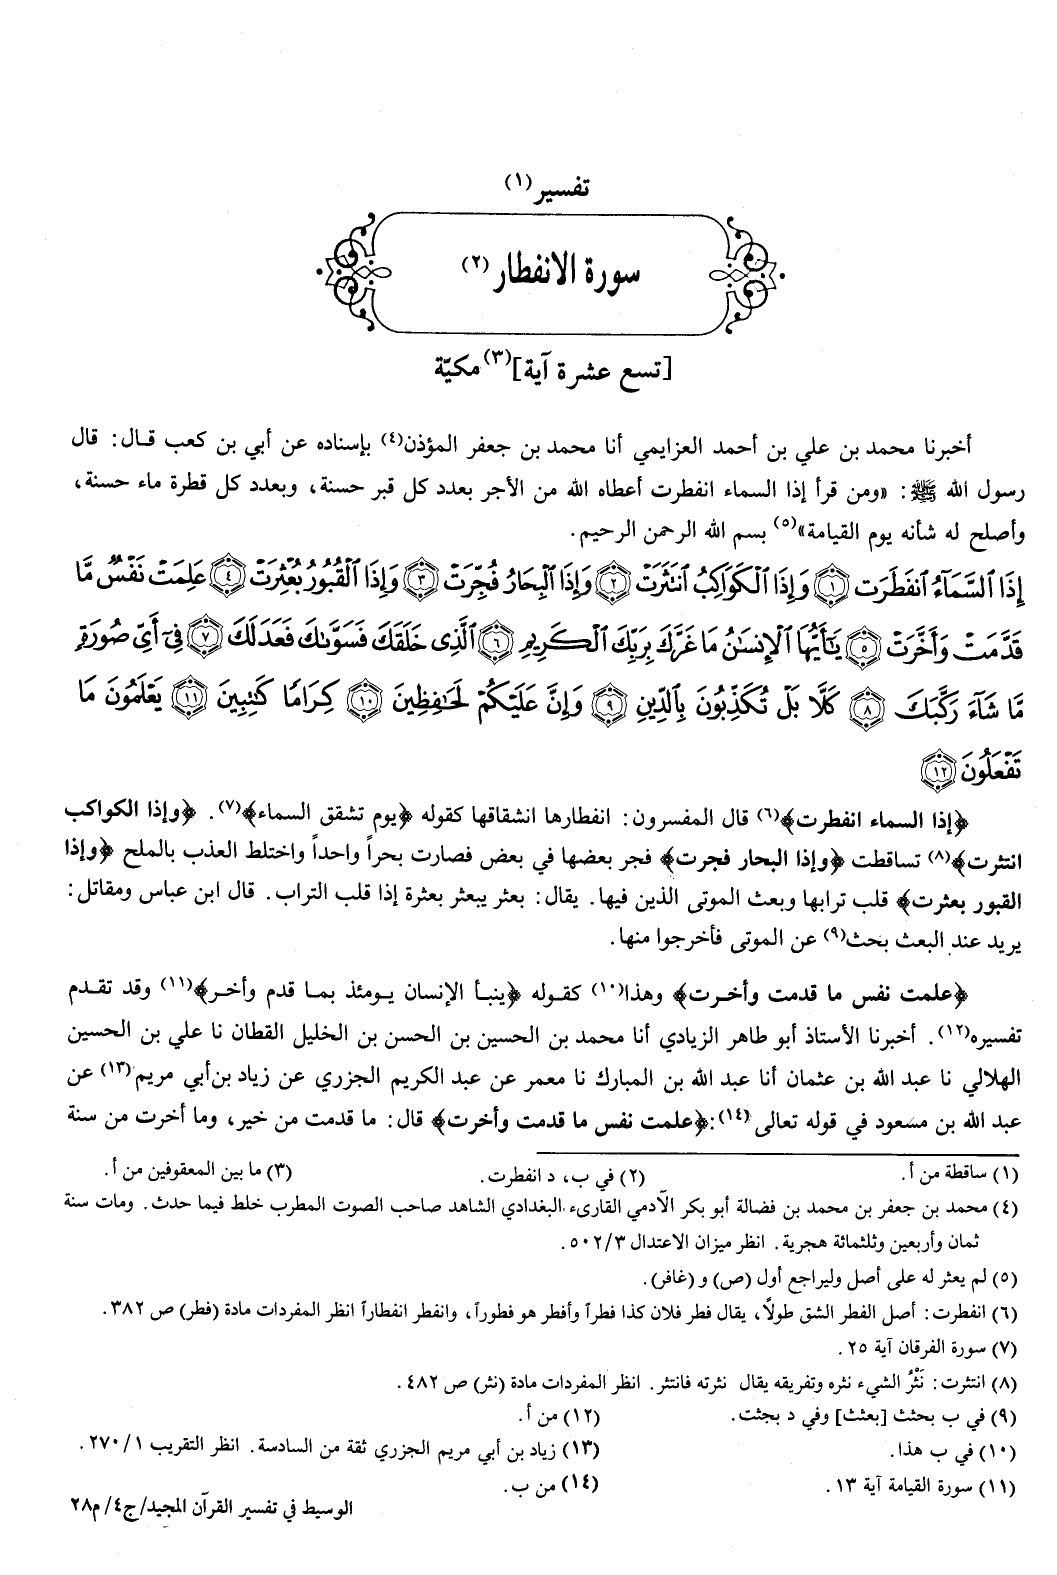 تفسير(١)
سورة الانفطار(٢)
[تسع عشرة آية](٣) مكيّة
أخبرنا محمد بن علي بن أحمد العزايمي أنا محمد بن جعفر المؤذن(٤) بإسناده عن أبي بن كعب قال: قال
رسول الله ﷺ: «ومن قرأ إذا السماء انفطرت أعطاه الله من الأجر بعدد كل قبر حسنة، وبعدد كل قطرة ماء حسنة،
وأصلح له شأنه يوم القيامة»(٥) بسم الله الرحمن الرحيم.
إِذَا ٱلسَّمَآءُ ٱنفَطَرَتْ ١ وَإِذَا ٱلْكَوَاكِبُ ٱنتَثَرَتْ ٢ وَإِذَا ٱلْبِحَارُ فُجِّرَتْ ٣ وَإِذَا ٱلْقُبُورُ بُعْثِرَتْ ٤ عَلِمَتْ نَفْسٌ مَّا
قَدَّمَتْ وَأَخَّرَتْ ٥ يَٰٓأَيُّهَا ٱلْإِنسَٰنُ مَا غَرَّكَ بِرَبِّكَ ٱلْكَرِيمِ ٦ ٱلَّذِى خَلَقَكَ فَسَوَّىٰكَ فَعَدَلَكَ ٧ فِىٓ أَىِّ صُورَةٍ
مَّا شَآءَ رَكَّبَكَ ٨ كَلَّا بَلْ تُكَذِّبُونَ بِٱلدِّينِ ٩ وَإِنَّ عَلَيْكُمْ لَحَٰفِظِينَ ١٠ كِرَامًا كَٰتِبِينَ ١١ يَعْلَمُونَ مَا
تَفْعَلُونَ ١٢
﴿إذا السماء انفطرت﴾(٦) قال المفسرون: انفطارها انشقاقها كقوله ﴿يوم تشقق السماء﴾(٧). ﴿وإذا الكواكب
انتثرت﴾(٨) تساقطت ﴿وإذا البحار فجرت﴾ فجر بعضها في بعض فصارت بحراً واحداً واختلط العذب بالملح ﴿وإذا
القبور بعثرت﴾ قلب ترابها وبعث الموتى الذين فيها. يقال: بعثر يبعثر بعثرة إذا قلب التراب. قال ابن عباس ومقاتل:
يريد عند البعث بحث(٩) عن الموتى فأخرجوا منها.
﴿علمت نفس ما قدمت وأخرت﴾ وهذا(١٠) كقوله ﴿ينبأ الإنسان يومئذ بما قدم وأخر﴾(١١) وقد تقدم
تفسيره(١٢). أخبرنا الأستاذ أبو طاهر الزيادي أنا محمد بن الحسين بن الحسن بن الخليل القطان نا علي بن الحسين
الهلالي نا عبد الله بن عثمان أنا عبد الله بن المبارك نا معمر عن عبد الكريم الجزري عن زياد بن أبي مريم(١٣) عن
عبد الله بن مسعود في قوله تعالى(١٤): ﴿علمت نفس ما قدمت وأخرت﴾ قال: ما قدمت من خير، وما أخرت من سنة
(١) ساقطة من أ. (٢) في ب، د انفطرت. (٣) ما بين المعقوفين من أ.
(٤) محمد بن جعفر بن محمد بن فضالة أبو بكر الآدمي القارىء البغدادي الشاهد صاحب الصوت المطرب خلط فيما حدث. ومات سنة
ثمان وأربعين وثلثمائة هجرية. انظر ميزان الاعتدال ٥٠٢/٣.
(٥) لم يعثر له على أصل وليراجع أول (ص) و (غافر).
(٦) انفطرت: أصل الفطر الشق طولًا، يقال فطر فلان كذا فطراً وأفطر هو فطوراً، وانفطر انفطاراً انظر المفردات مادة (فطر) ص ٣٨٢.
(٧) سورة الفرقان آية ٢٥.
(٨) انتثرت: نَثْرُ الشيء نثره وتفريقه يقال نثرته فانتثر. انظر المفردات مادة (نثر) ص ٤٨٢.
(٩) في ب بحثث [بعثث] وفي د بجثت. (١٢) من أ.
(١٠) في ب هذا. (١٣) زياد بن أبي مريم الجزري ثقة من السادسة. انظر التقريب ٢٧٠/١.
(١١) سورة القيامة آية ١٣. (١٤) من ب.
الوسيط في تفسير القرآن المجيد/ج٤/م٢٨